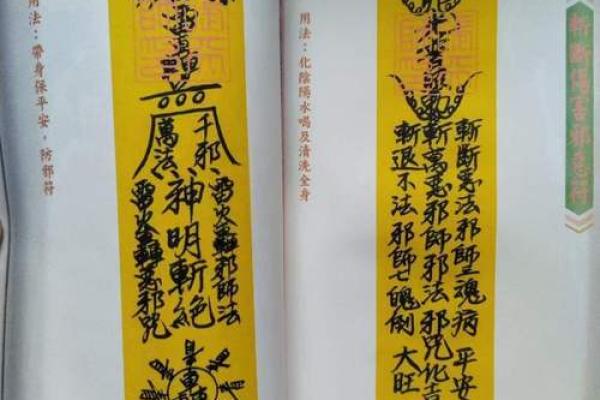 斬斷傷害邪惡符
斬斷惡法邪師三魂病 平安
斬萬惡邪師邪法邪咒化吉
斬退不法邪師七魄倒 大旺
用法：化陰陽水喝及清洗全身
千邪
萬法
雷火邪師法
神明斬絕
雷火惡邪咒
用法：帶身保平安，防邪符